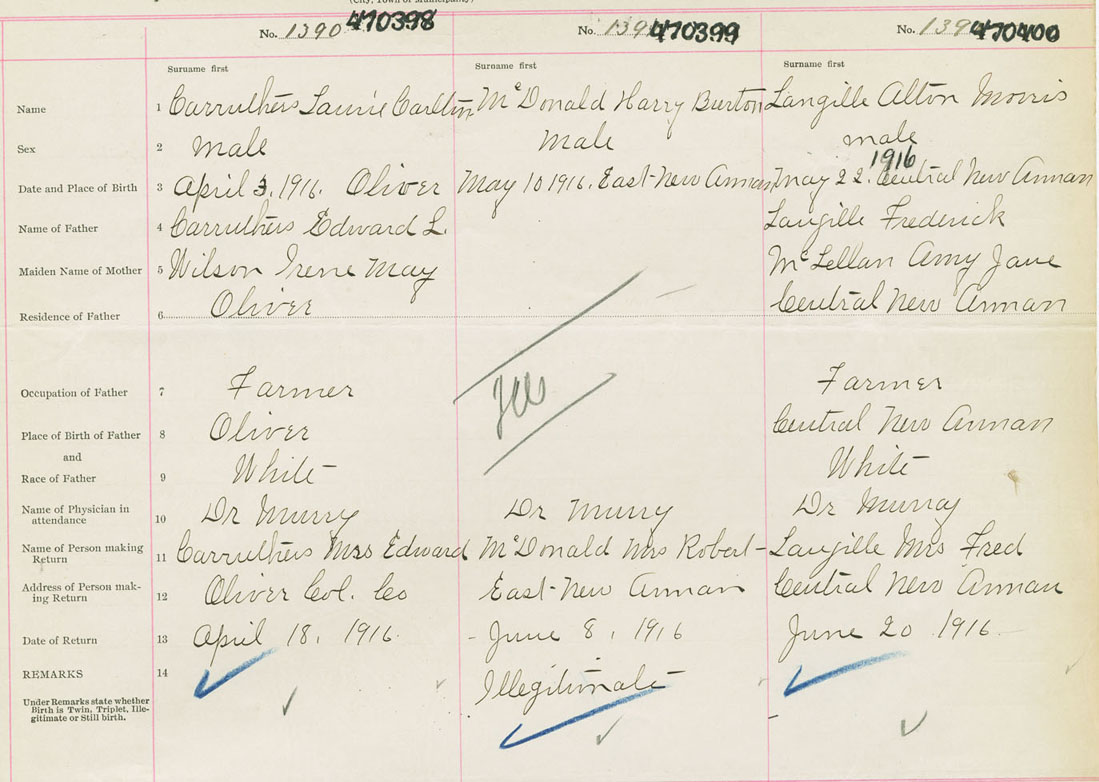 No. 1390 470398 No. 139 470399 No. 139 470400
Surname first Surname first Surname first
Name 1 Carruthers Laurie Carlton McDonald Harry Burton Langille Alton Morris
Sex 2 Male Male male
1916
Date and Place of Birth 3 April 3, 1916. Oliver May 10 1916. East New Annan May 22. Central New Annan
Name of Father 4 Carruthers Edward L. Langille Frederick
Maiden Name of Mother 5 Wilson Irene May McLellan Amy Jane
Residence of Father 6 Oliver Central New Annan
Occupation of Father 7 Farmer Farmer
Place of Birth of Father 8 Oliver Central New Annan
and
Race of Father 9 White White
Name of Physician in
attendance 10 Dr Murry Dr Murry Dr Murray
Name of Person making
Return 11 Carruthers Mrs Edward McDonald Mrs Robert Langille Mrs Fred
Address of Person mak-
ing Return 12 Oliver Col. Co East New Annan Central New Annan
Date of Return 13 April 18, 1916. June 8, 1916 June 20 1916
REMARKS 14 Illegitimate
Under Remarks state whether
Birth is Twin, Triplet, Ille-
gitimate or Still birth.